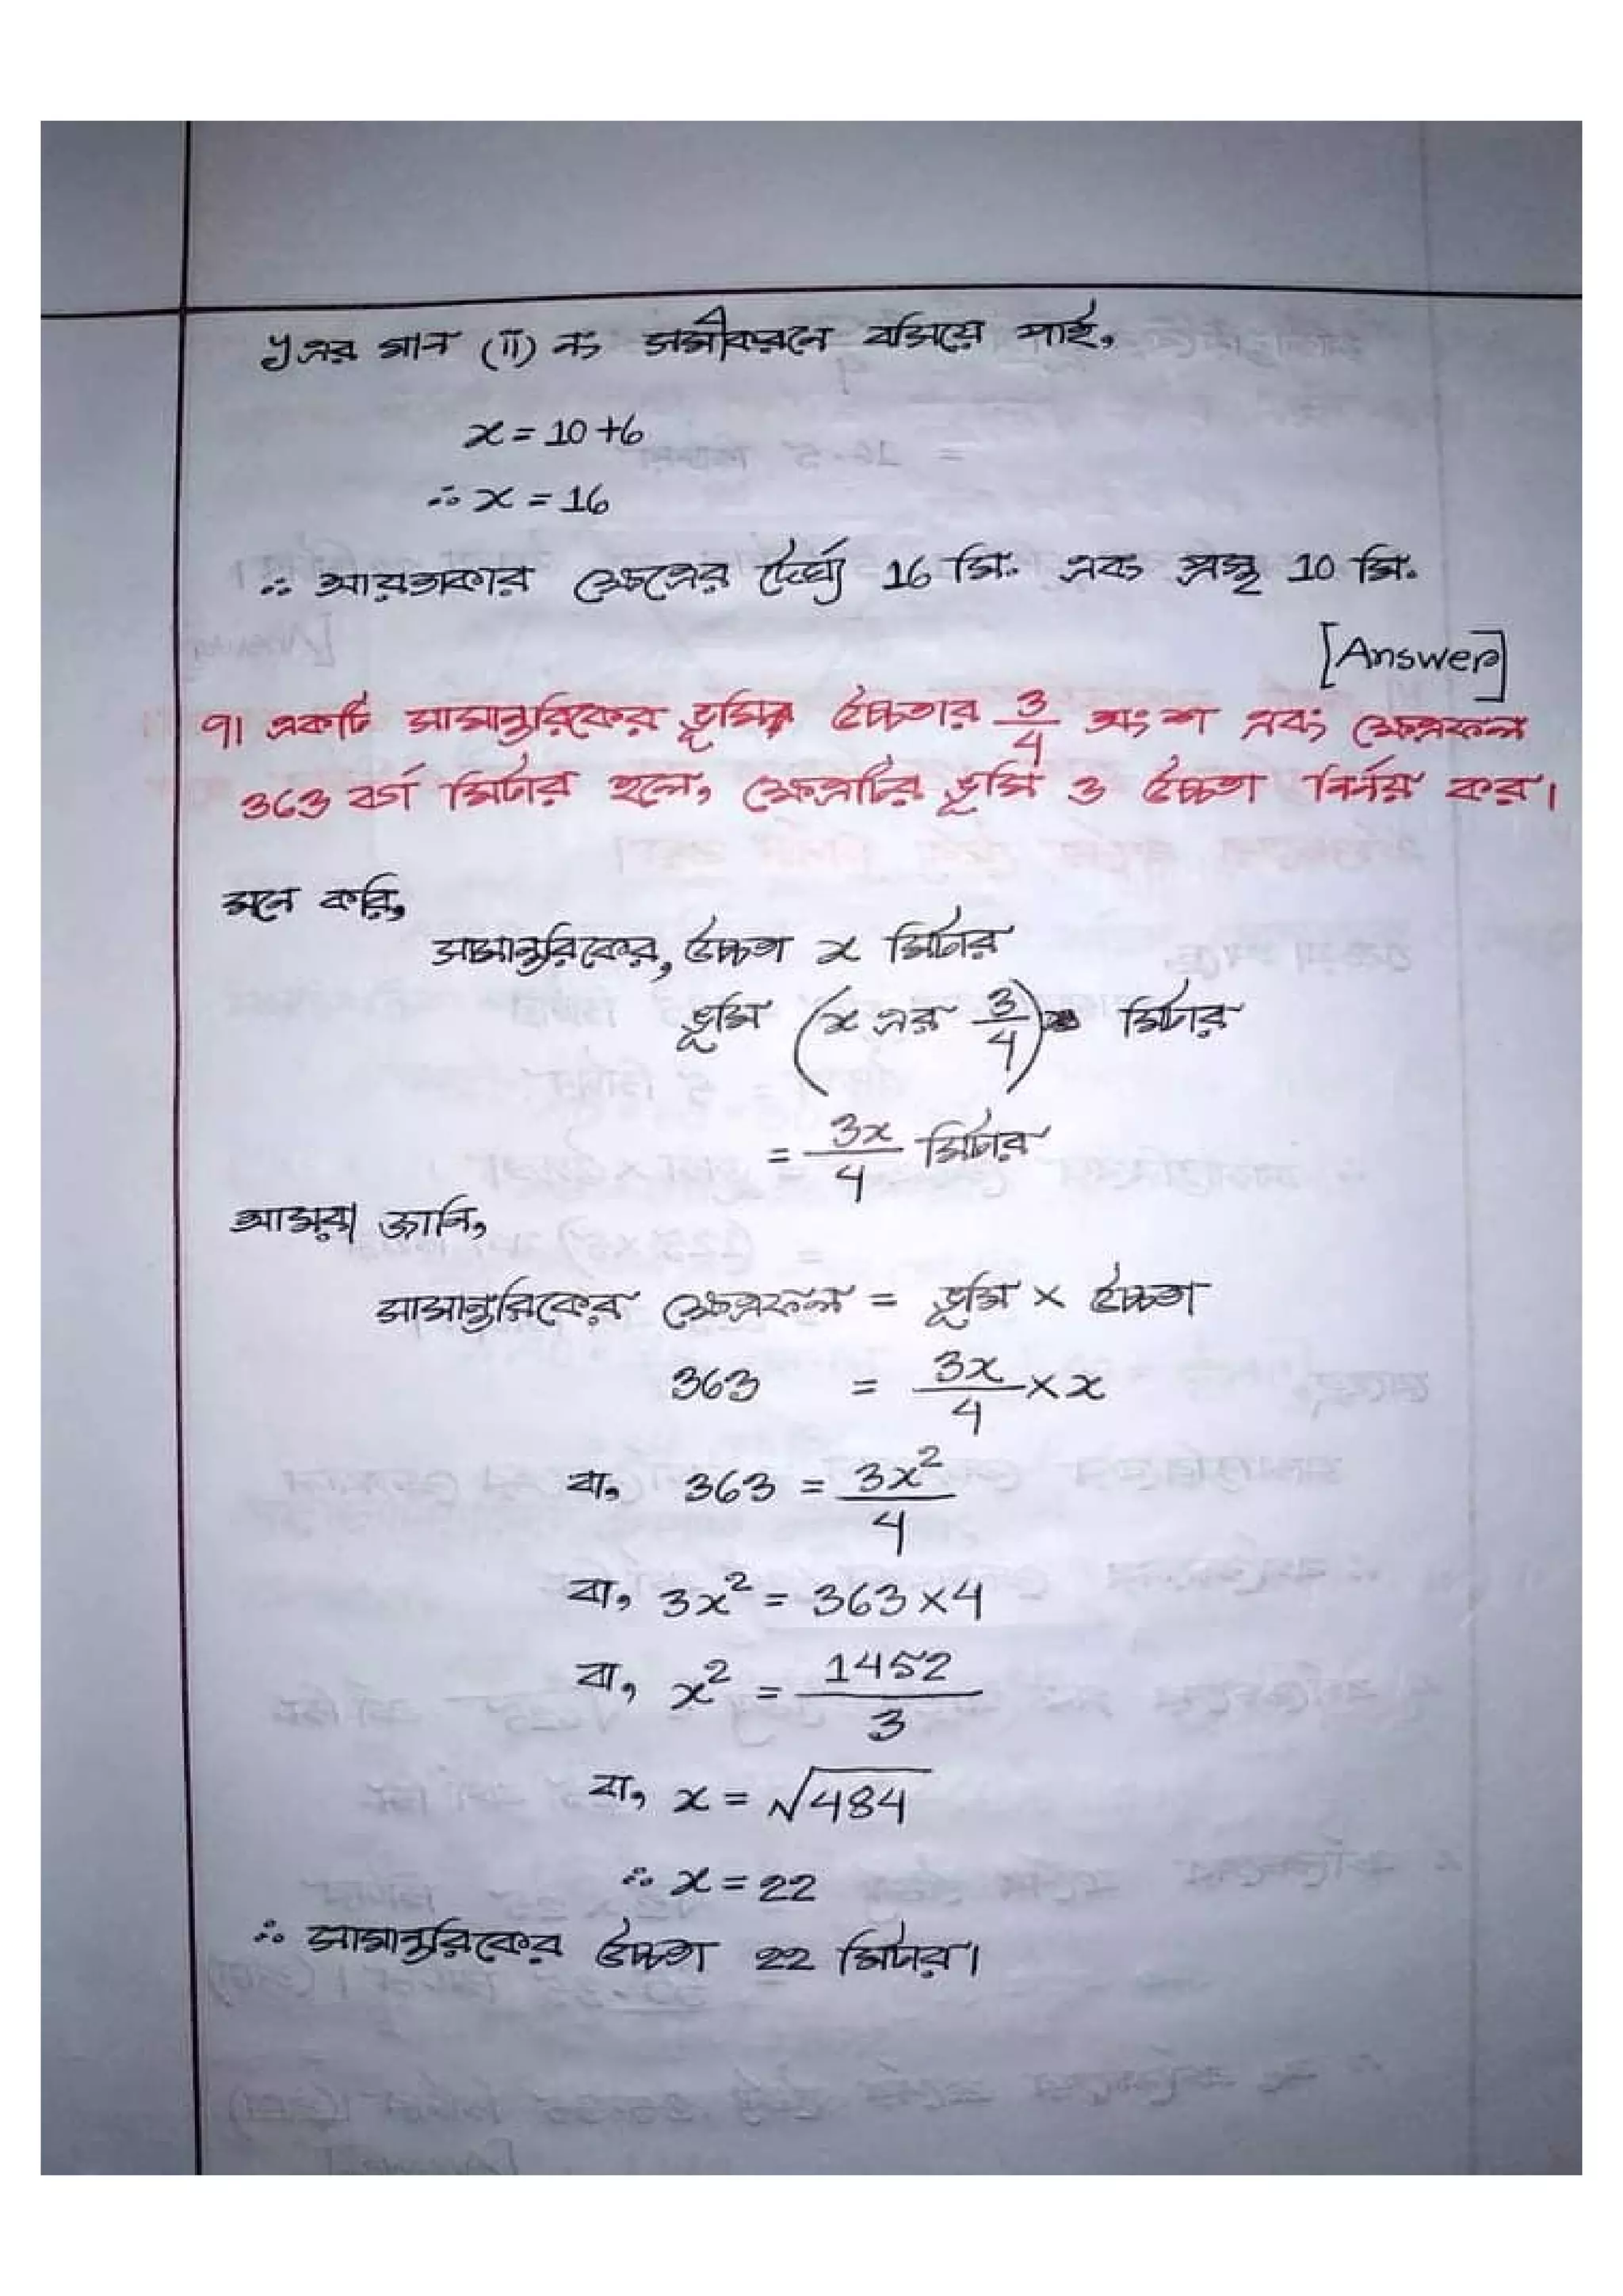 y এর মান (ii) নং সমীকরনে বসিয়ে পাই,
x = 10 + 6
∴ x = 16
∴ আয়তাকার ক্ষেত্রের দৈর্ঘ্য 16 মি. এবং প্রস্থ 10 মি.
[Answer]
৭। একটি সামান্তরিকের ভূমির উচ্চতার 3/4 অংশ এবং ক্ষেত্রফল
363 বর্গ মিটার হলে, ক্ষেত্রটির ভূমি ও উচ্চতা নির্নয় কর।
মনে করি,
সামান্তরিকের, উচ্চতা x মিটার
ভূমি (x এর 3/4) মিটার
= 3x/4 মিটার
আমরা জানি,
সামান্তরিকের ক্ষেত্রফল = ভূমি × উচ্চতা
363 = 3x/4 × x
বা, 363 = 3x²/4
বা, 3x² = 363 × 4
বা, x² = 1452/3
বা, x = √484
∴ x = 22
∴ সামান্তরিকের উচ্চতা 22 মিটার।